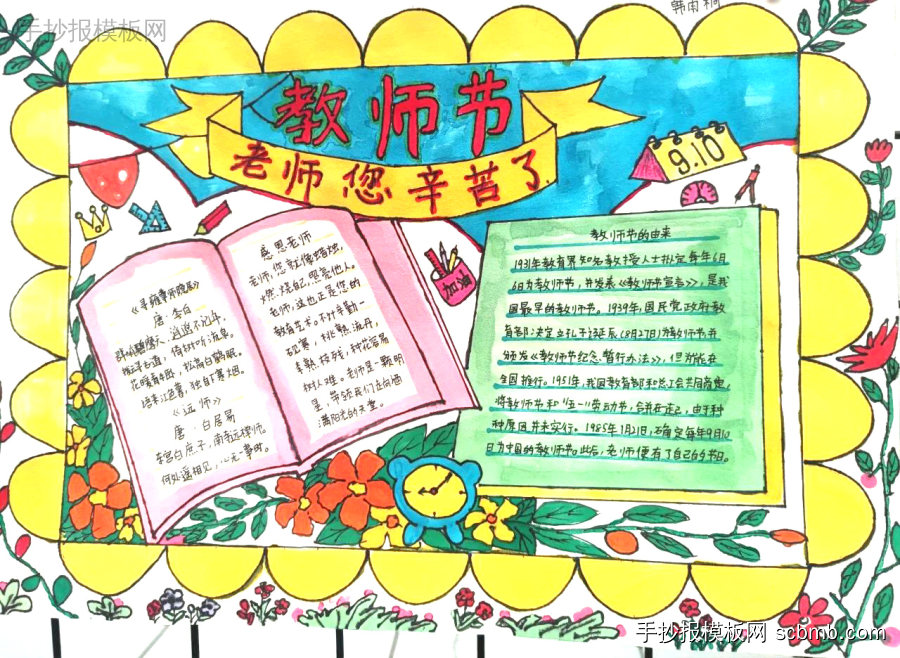 手抄报模板网
韩雨桐
教师节
老师您辛苦了
9.10
加油
唐·李白
倚树听流泉。
花暖青牛卧,松高白鹤眠。
语来江色暮,独自下寒烟。
《远师》
唐·白居易
东宫白庶子,南寺远禅师。
何处遥相见,心无一事时。
感恩老师
老师,您就像蜡烛,
燃烧自己,照亮他人。
老师,这也正是您的
树人难。老师是一颗明
星,带领我们走向洒
满阳光的天堂。
教师节的由来
1931年教育界知名教授人士拟定每年6月
6日为教师节,并发表《教师节宣言》,是我
国最早的教师节。1939年,国民党政府教
育部决定立孔子诞辰(8月27日)为教师节并
颁发《教师节纪念暂行办法》,但未能在
全国推行。1951年,我国教育部和总工会共同商定,
将教师节和“五一”劳动节,合并在一起,由于种
种原因并未实行。1985年1月21日,确定每年9月10
日为中国的教师节。此后,老师便有了自己的节日。
手抄报模板网 scbmb.com